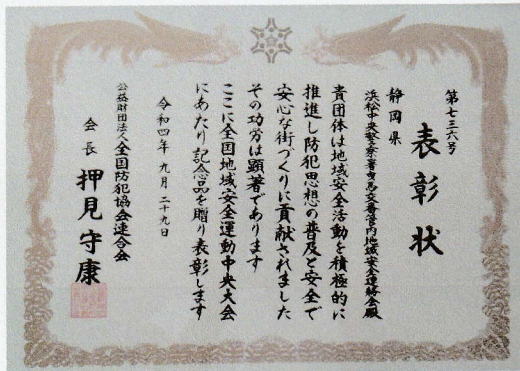 第七三六号
表彰状
静岡県
浜松中央警察署曳馬交番管内地域安全連絡会殿
貴団体は地域安全活動を積極的に
推進し防犯思想の普及と安全で
安心な街づくりに貢献されました
その功労は顕著であります
ここに全国地域安全運動中央大会
にあたり記念品を贈り表彰します
令和四年九月二十九日
公益財団法人全国防犯協会連合会
会長 押見守康